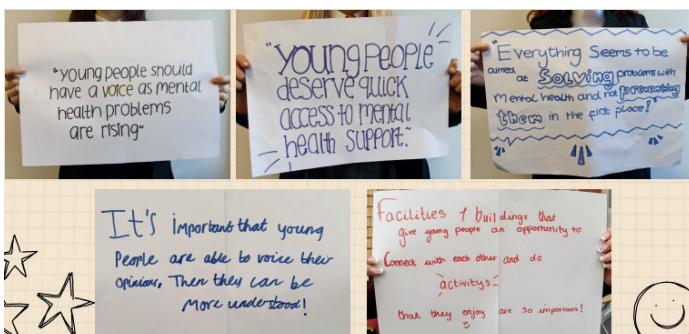 "Young people should
have a voice as mental
health problems
are rising"
"Young people
deserve quick
access to mental
health support."
"Everything seems to be
aimed at solving problems with
mental health and not preventing
them in the first place!"
It's important that young
People are able to voice their
opinions. Then they can be
More understood!
Facilities / buildings that
give young people an opportunity to
Connect with each other and do
activitys
that they enjoy are so important!